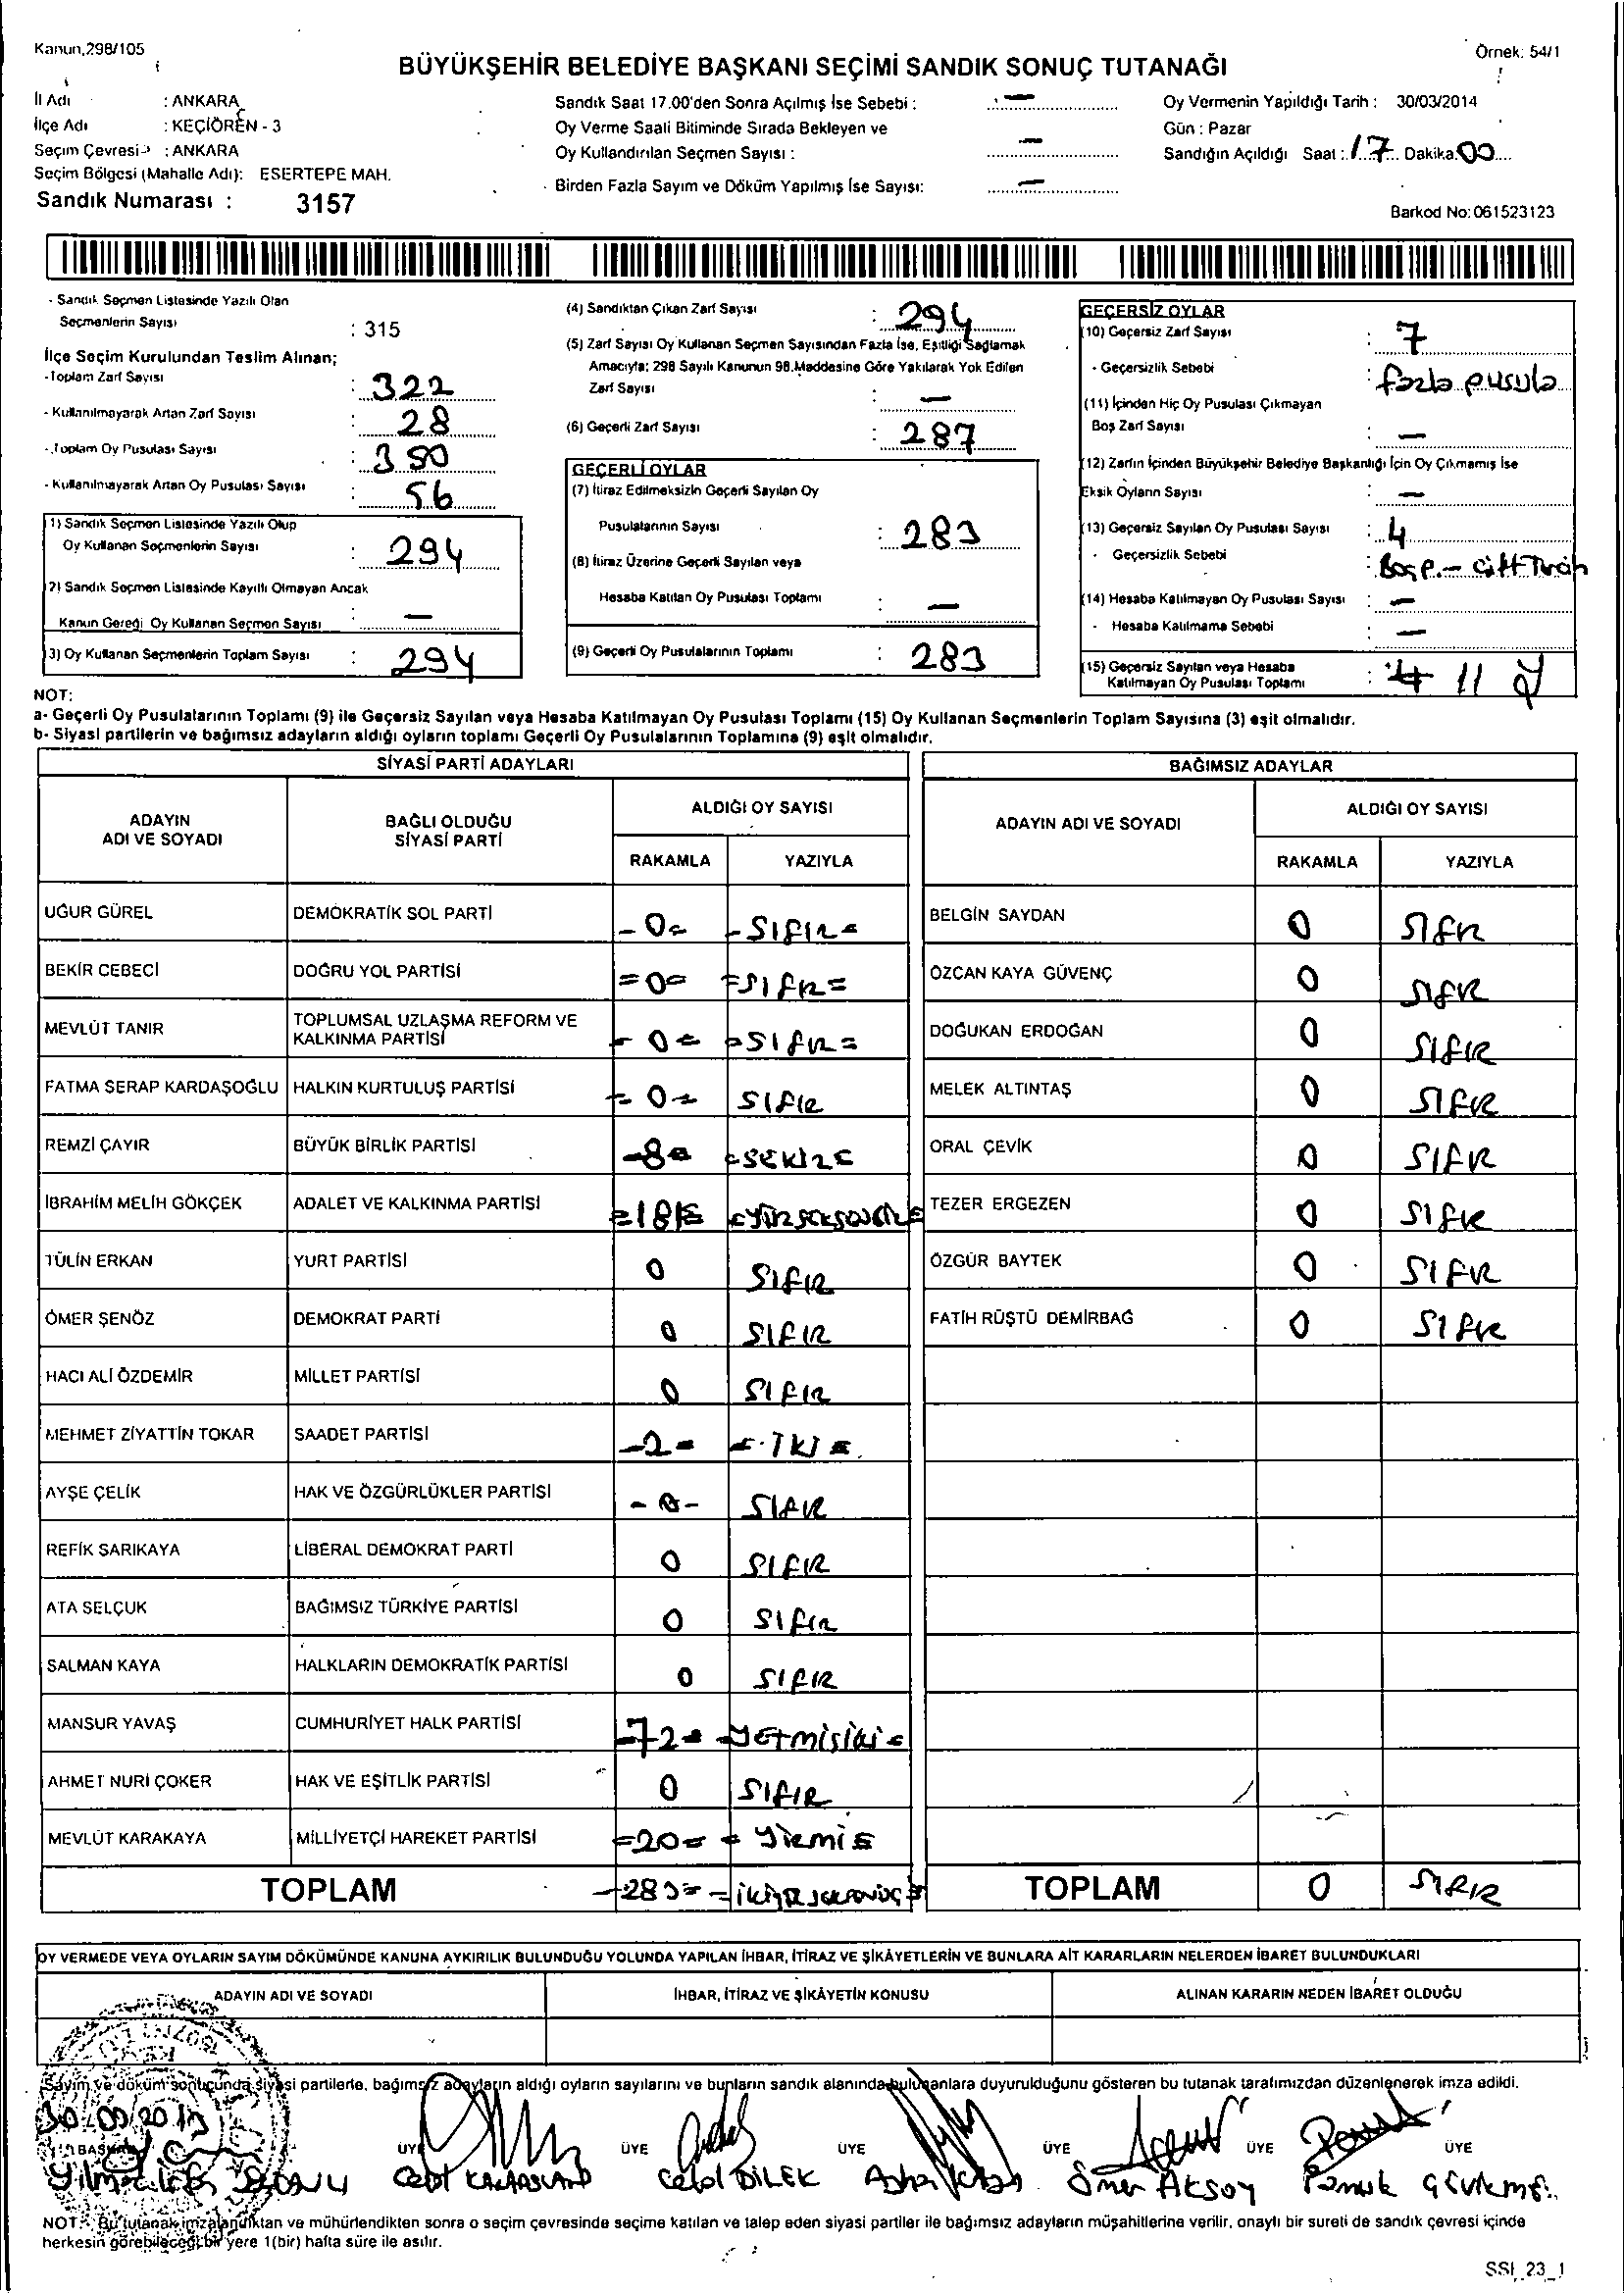 Kanun,298/105
Örnek: 54/1
BÜYÜKŞEHİR BELEDİYE BAŞKANI SEÇİMİ SANDIK SONUÇ TUTANAĞI
İl Adı : ANKARA
İlçe Adı : KEÇİÖREN - 3
Seçim Çevresi : ANKARA
Seçim Bölgesi (Mahalle Adı): ESERTEPE MAH.
Sandık Numarası : 3157
Sandık Saat 17.00'den Sonra Açılmış İse Sebebi : —
Oy Verme Saati Bitiminde Sırada Bekleyen ve
Oy Kullandırılan Seçmen Sayısı : —
Birden Fazla Sayım ve Döküm Yapılmış İse Sayısı: —
Oy Vermenin Yapıldığı Tarih : 30/03/2014
Gün : Pazar
Sandığın Açıldığı Saat : 17 Dakika: 00
Barkod No:061523123
- Sandık Seçmen Listesinde Yazılı Olan
Seçmenlerin Sayısı : 315
İlçe Seçim Kurulundan Teslim Alınan;
-Toplam Zarf Sayısı : 322
- Kullanılmayarak Artan Zarf Sayısı : 28
- Toplam Oy Pusulası Sayısı : 350
- Kullanılmayarak Artan Oy Pusulası Sayısı : 56
1) Sandık Seçmen Listesinde Yazılı Olup
Oy Kullanan Seçmenlerin Sayısı : 294
2) Sandık Seçmen Listesinde Kayıtlı Olmayan Ancak
Kanun Gereği Oy Kullanan Seçmen Sayısı : —
3) Oy Kullanan Seçmenlerin Toplam Sayısı : 294
(4) Sandıktan Çıkan Zarf Sayısı : 294
(5) Zarf Sayısı Oy Kullanan Seçmen Sayısından Fazla İse, Eşitliği Sağlamak
Amacıyla; 298 Sayılı Kanunun 98.Maddesine Göre Yakılarak Yok Edilen
Zarf Sayısı : —
(6) Geçerli Zarf Sayısı : 287
GEÇERLİ OYLAR
(7) İtiraz Edilmeksizin Geçerli Sayılan Oy
Pusulalarının Sayısı : 283
(8) İtiraz Üzerine Geçerli Sayılan veya
Hesaba Katılan Oy Pusulası Toplamı : —
(9) Geçerli Oy Pusulalarının Toplamı : 283
GEÇERSİZ OYLAR
(10) Geçersiz Zarf Sayısı : 7
- Geçersizlik Sebebi : fazla pusula
(11) İçinden Hiç Oy Pusulası Çıkmayan
Boş Zarf Sayısı : —
(12) Zarfın İçinden Büyükşehir Belediye Başkanlığı İçin Oy Çıkmamış İse
Eksik Oyların Sayısı : —
(13) Geçersiz Sayılan Oy Pusulası Sayısı : 4
- Geçersizlik Sebebi : Boş P. - Çift
(14) Hesaba Katılmayan Oy Pusulası Sayısı : —
- Hesaba Katılmama Sebebi : —
(15) Geçersiz Sayılan veya Hesaba
Katılmayan Oy Pusulası Toplamı : 4 11
NOT:
a- Geçerli Oy Pusulalarının Toplamı (9) ile Geçersiz Sayılan veya Hesaba Katılmayan Oy Pusulası Toplamı (15) Oy Kullanan Seçmenlerin Toplam Sayısına (3) eşit olmalıdır.
b- Siyasi partilerin ve bağımsız adayların aldığı oyların toplamı Geçerli Oy Pusulalarının Toplamına (9) eşit olmalıdır.
SİYASİ PARTİ ADAYLARI
ADAYIN ADI VE SOYADI BAĞLI OLDUĞU SİYASİ PARTİ ALDIĞI OY SAYISI
RAKAMLA YAZIYLA
UĞUR GÜREL DEMOKRATİK SOL PARTİ - 0 = - SIFIR =
BEKİR CEBECİ DOĞRU YOL PARTİSİ = 0 = = SIFIR =
MEVLÜT TANIR TOPLUMSAL UZLAŞMA REFORM VE KALKINMA PARTİSİ - 0 = = SIFIR =
FATMA SERAP KARDAŞOĞLU HALKIN KURTULUŞ PARTİSİ = 0 = SIFIR
REMZİ ÇAYIR BÜYÜK BİRLİK PARTİSİ - 8 = = SEKİZ =
İBRAHİM MELİH GÖKÇEK ADALET VE KALKINMA PARTİSİ = 181 = = YÜZSEKSENBİR =
TÜLİN ERKAN YURT PARTİSİ 0 SIFIR
ÖMER ŞENÖZ DEMOKRAT PARTİ 0 SIFIR
HACI ALİ ÖZDEMİR MİLLET PARTİSİ 0 SIFIR
MEHMET ZİYATTİN TOKAR SAADET PARTİSİ - 2 = = İKİ =
AYŞE ÇELİK HAK VE ÖZGÜRLÜKLER PARTİSİ - 0 - SIFIR
REFİK SARIKAYA LİBERAL DEMOKRAT PARTİ 0 SIFIR
ATA SELÇUK BAĞIMSIZ TÜRKİYE PARTİSİ 0 SIFIR
SALMAN KAYA HALKLARIN DEMOKRATİK PARTİSİ 0 SIFIR
MANSUR YAVAŞ CUMHURİYET HALK PARTİSİ - 72 = - Yetmişiki =
AHMET NURİ ÇOKER HAK VE EŞİTLİK PARTİSİ 0 SIFIR
MEVLÜT KARAKAYA MİLLİYETÇİ HAREKET PARTİSİ = 20 = = Yirmi =
TOPLAM - 283 = = İKİYÜZSEKSENÜÇ =
BAĞIMSIZ ADAYLAR
ADAYIN ADI VE SOYADI ALDIĞI OY SAYISI
RAKAMLA YAZIYLA
BELGİN SAYDAN 0 SIFIR
ÖZCAN KAYA GÜVENÇ 0 SIFIR
DOĞUKAN ERDOĞAN 0 SIFIR
MELEK ALTINTAŞ 0 SIFIR
ORAL ÇEVİK 0 SIFIR
TEZER ERGEZEN 0 SIFIR
ÖZGÜR BAYTEK 0 SIFIR
FATİH RÜŞTÜ DEMİRBAĞ 0 SIFIR
TOPLAM 0 SIFIR
OY VERMEDE VEYA OYLARIN SAYIM DÖKÜMÜNDE KANUNA AYKIRILIK BULUNDUĞU YOLUNDA YAPILAN İHBAR, İTİRAZ VE ŞİKÂYETLERİN VE BUNLARA AİT KARARLARIN NELERDEN İBARET BULUNDUKLARI
ADAYIN ADI VE SOYADI İHBAR, İTİRAZ VE ŞİKÂYETİN KONUSU ALINAN KARARIN NEDEN İBARET OLDUĞU
Sayım ve döküm sonucunda siyasi partilerle, bağımsız adayların aldığı oyların sayılarını ve bunların sandık alanında bulunanlara duyurulduğunu gösteren bu tutanak tarafımızdan düzenlenerek imza edildi.
ÜYE ÜYE ÜYE ÜYE ÜYE ÜYE
Celal DİLEK
Ömer AKSOY
NOT: Bu tutanak imzalandıktan ve mühürlendikten sonra o seçim çevresinde seçime katılan ve talep eden siyasi partiler ile bağımsız adayların müşahitlerine verilir, onaylı bir sureti de sandık çevresi içinde
herkesin görebileceği bir yere 1(bir) hafta süre ile asılır.
SSI_23_1